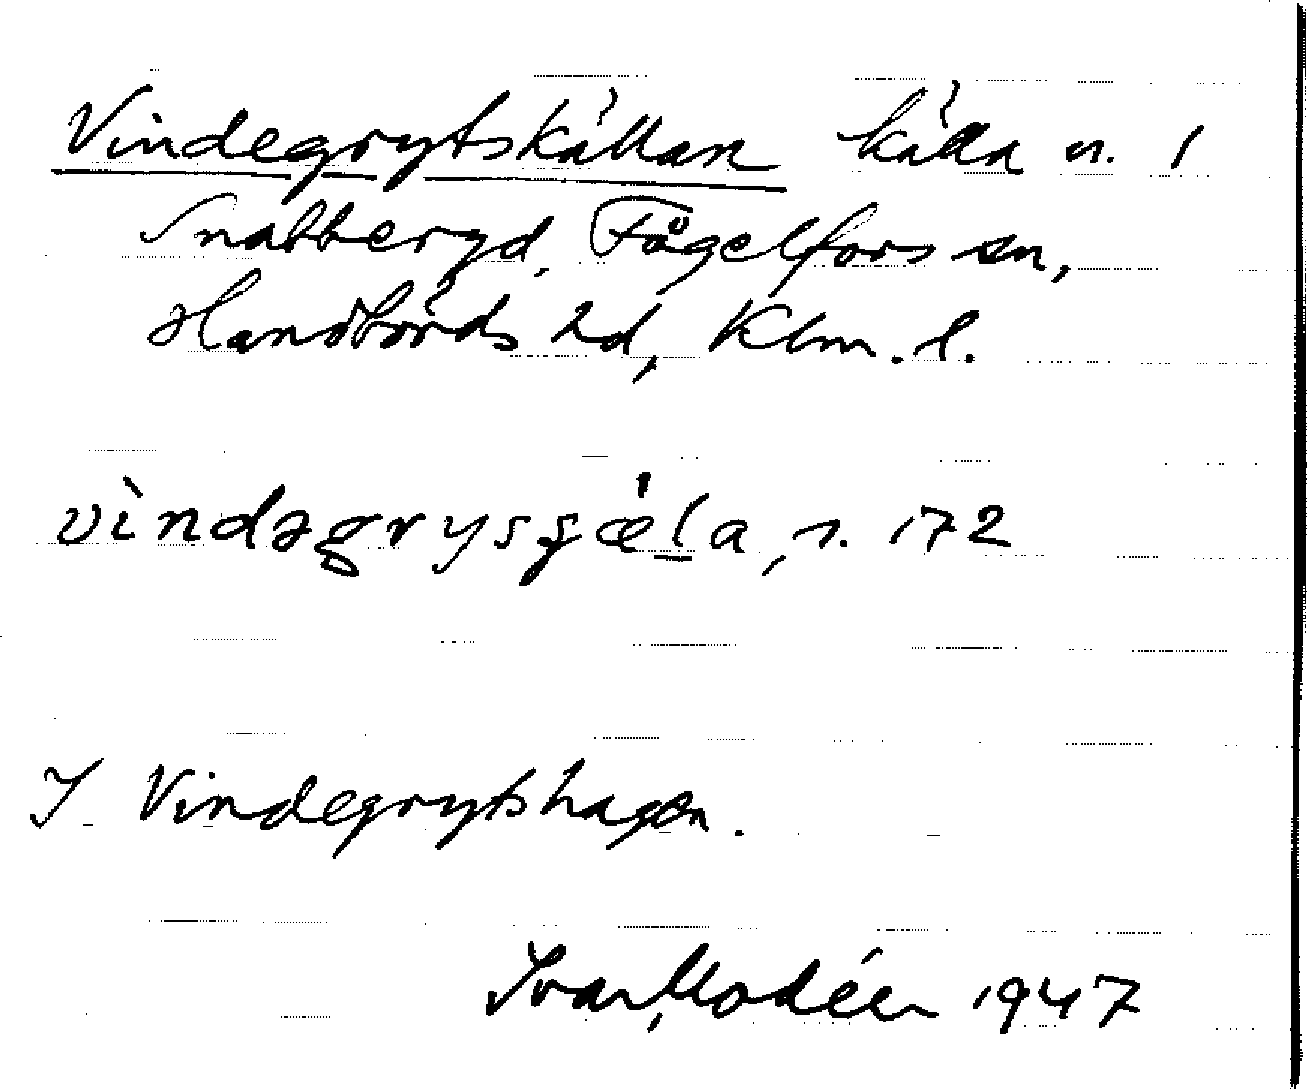 Vindegrytskällan källa n. 1
Snabberyd, Fågelfors sn,
Handbörds hd, Klm. l.
vìndəgrysʂæ̍l̠a, s. 172
I Vindegrytshagen.
Ivar Modéer 1947